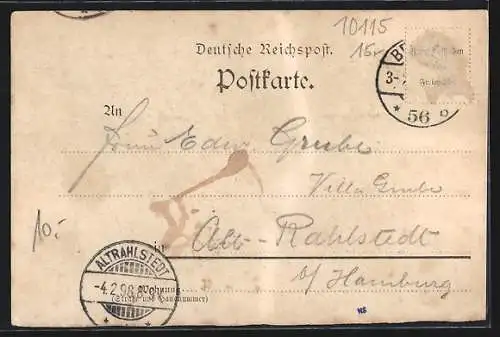 10115
15.-
Deutsche Reichspost.
Postkarte.
An
Frau Edw. Grube
Villa Grube
in Alt-Rahlstedt
b/ Hamburg
10.-
Wohnung
(Straße und Hausnummer)
ALTRAHLSTEDT
-4.2.98
B
3-
56
HS